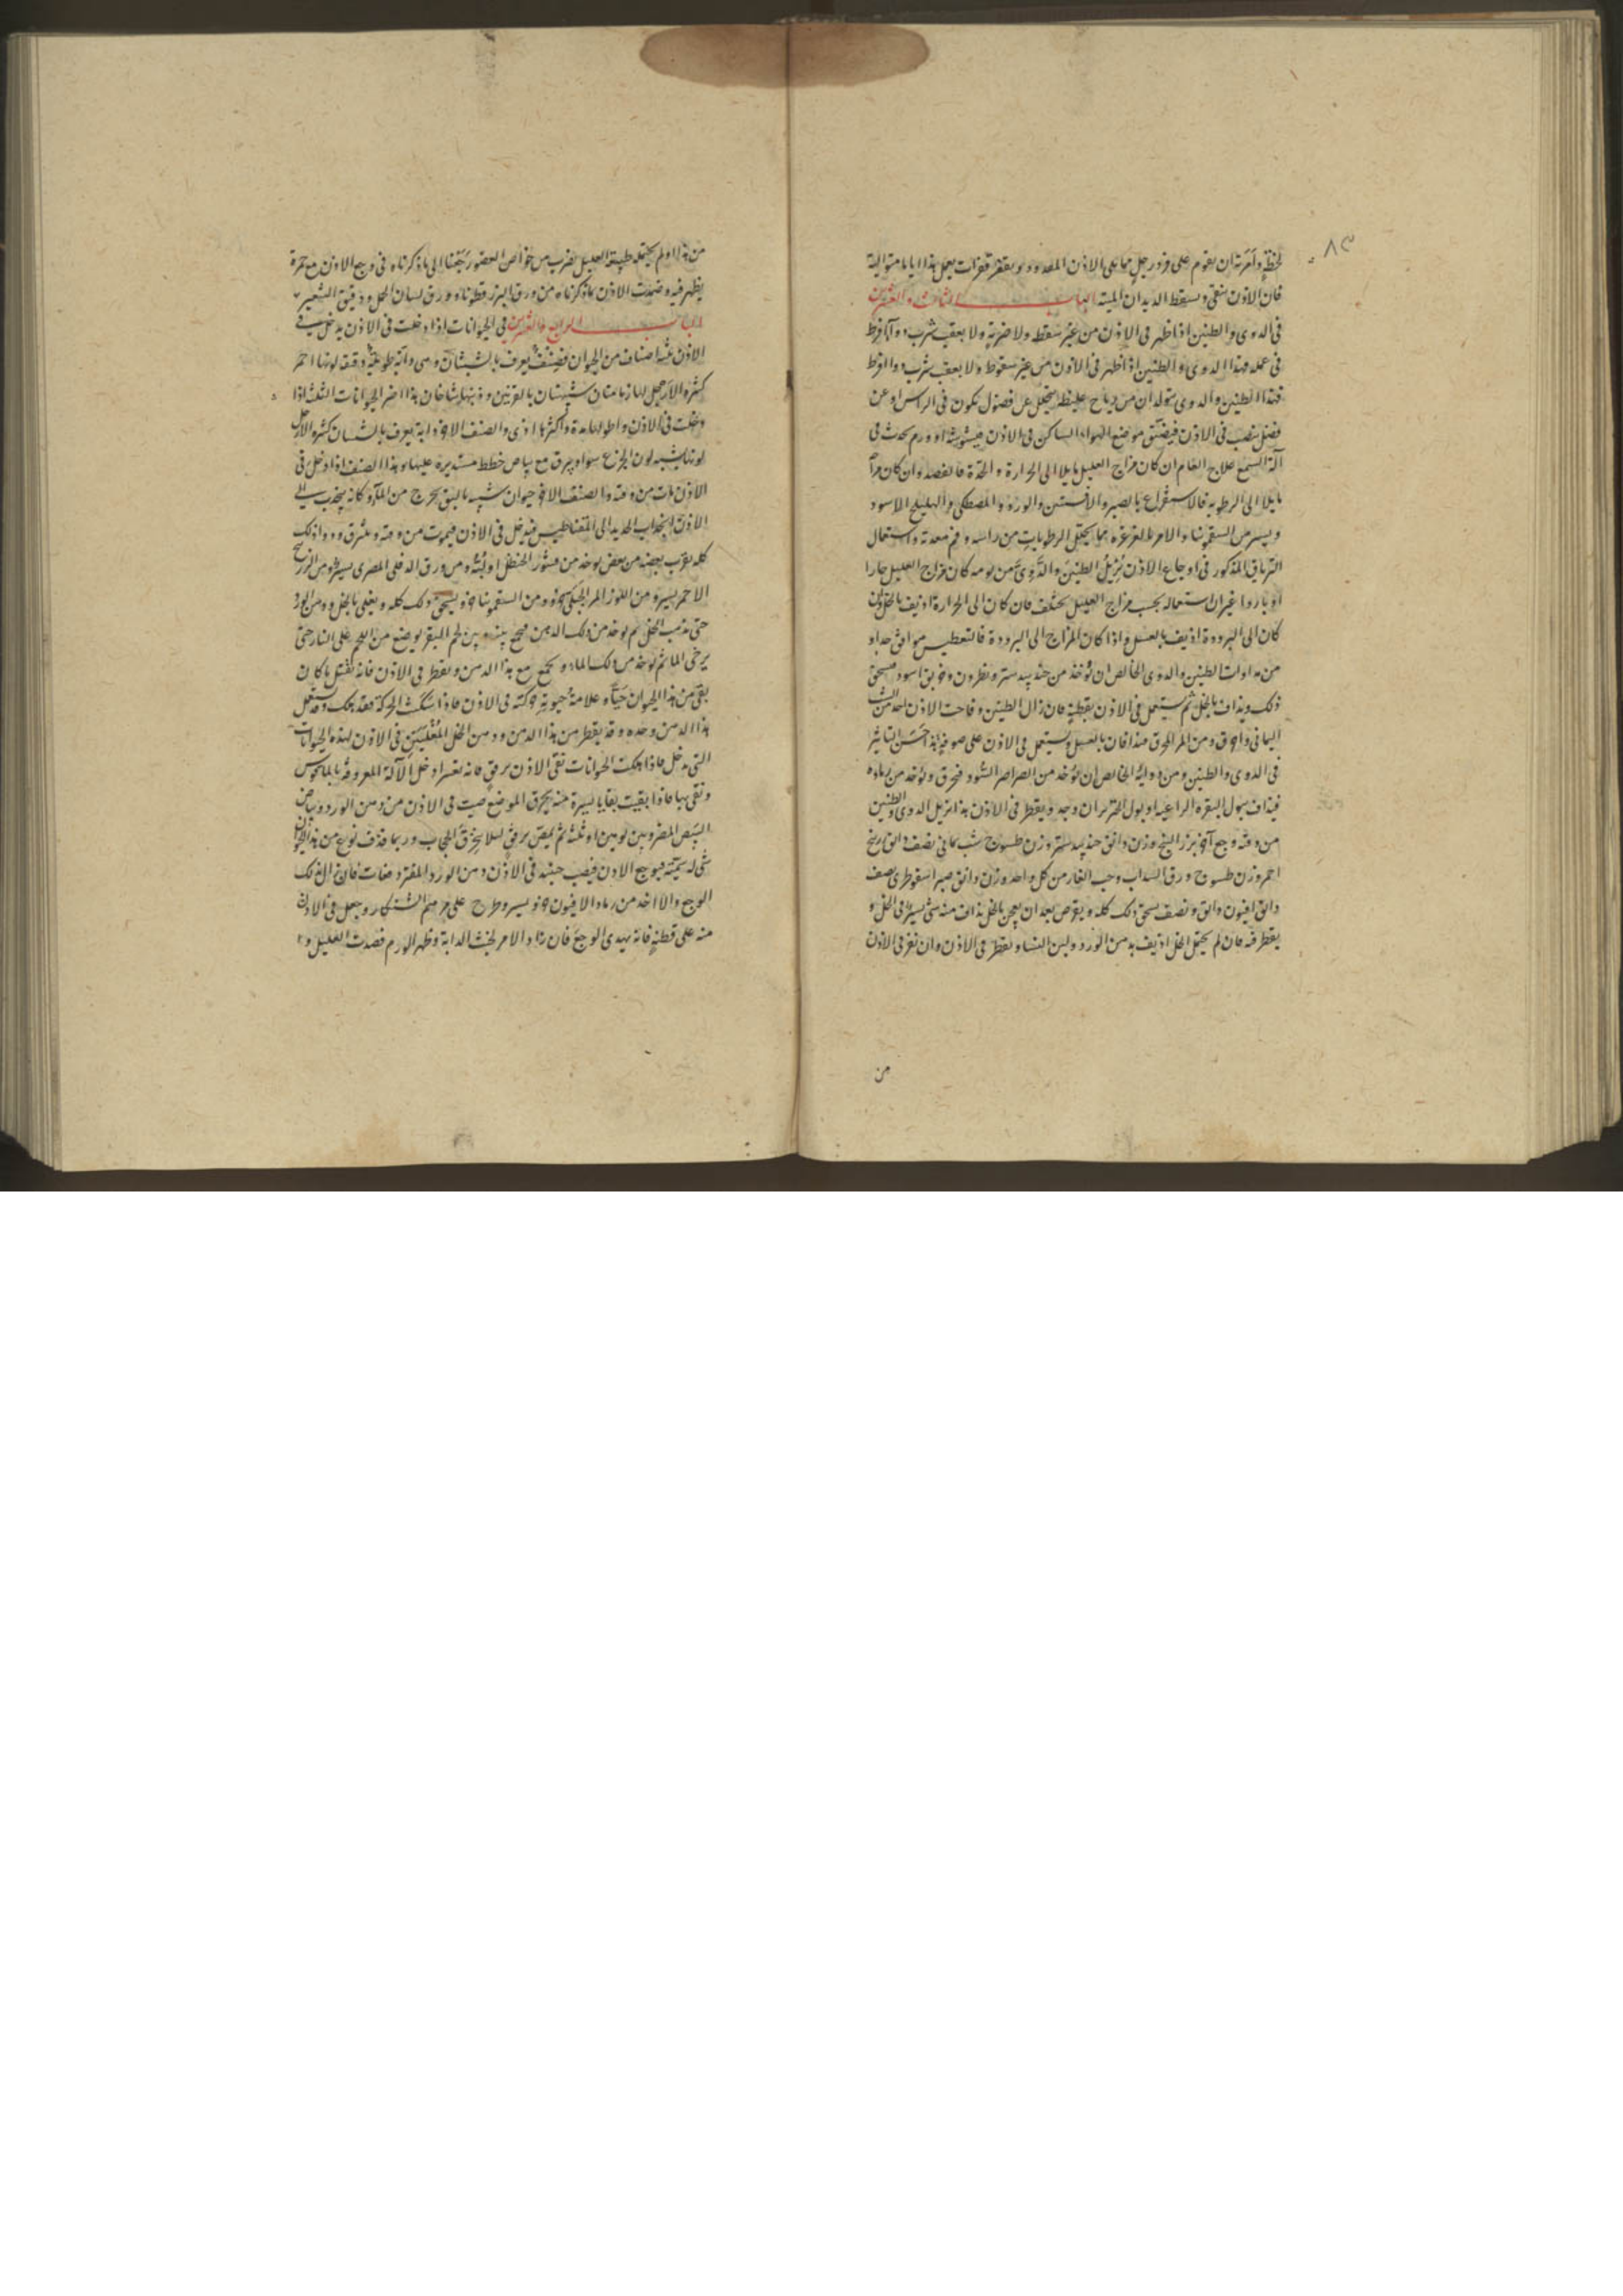 ٨٣
لحظة وامرته ان يقوم على فرد رجل مما يلى الاذن المقصود ويقفز قفزات يعمل هذا اياما متوالية
فان الاذن تنقى ويسقط الديدان الميتة الباب الثالث والعشرين
فى الدوى والطنين اذا ظهر فى الاذن من غير سقطة ولا ضربة ولا بعقب شرب دواء افرط
فى عمله فهذا الدوى والطنين اذا ظهر فى الاذن من غير سقوط ولا بعقب شرب دواء افرط
فهذا الطنين والدوى يتولدان من رياح غليظة يتحلل عن فضول تكون فى الراس او عن
فضل ينصب فى الاذن فيضيق موضع الهواء الساكن فى الاذن فيشوشه او ورم يحدث فى
آلة السمع علاج العام ان كان مزاج العليل مايلا الى الحرارة والحدة فالفصد وان كان
مايلا الى الرطوبة فالاستفراغ بالصبر والافسنتين والورد والمصطكى والهليلج الاسود
ويسير من السقمونيا والامر بالغرغرة بما يحلل الرطوبات من راسه وفم معدته واستعمال
الترياق المذكور فى اوجاع الاذن يزيل الطنين والدوى من يومه كان مزاج العليل حارا
او باردا غير ان استعماله بحسب مزاج العليل يختلف فان كان الى الحرارة اذيف بالخل وان
كان الى البرودة اذيف بالعسل واذا كان المزاج الى البرودة فالتعطيس موافق جدا و
من مداواة الطنين والدوى الخالص ان يؤخذ من جند بيدستر ونطرون وخربق اسود يسحق
ذلك ويذاف بالخل ثم يستعمل فى الاذن بقطنة فان زال الطنين وقاحت الاذن اخذ من الشب
اليمانى واحرق ومن المر المحرق فيذافان بالعسل ويستعمل فى الاذن على صوفة فهذا حسن التاثير
فى الدوى والطنين ومن دوائه الخالص ان يؤخذ من الصراصر السود فتحرق ويؤخذ من رماده
فيذاف ببول البقرة الراعية او بول الثور ان وجد ويقطر فى الاذن هذا يزيل الدوى والطنين
من وقته وجع آخر بزر البنج وزن دانق جند بيدستر وزن طسوج شب يمانى نصف دانق زرنيخ
احمر وزن طسوج ورق السداب وحب الغار من كل واحد وزن دانق صبر اسقوطرى نصف
دانق افيون دانق ونصف يسحق ذلك كله ويقرص بعد ان يعجن بالخل يذاف منه شى يسير فى الخل و
يقطر فيه فان لم يحتمل الخل اذيف بدهن الورد ولبن النساء ويقطر فى الاذن وان نفر فى الاذن
من
من هذا ولم يحتمله طبيعة العليل بضرب من خواص العضو رجعنا الى ما ذكرناه فى وجع الاذن مع حمرة
يظهر فيه وضمدت الاذن بما ذكرناه من ورق البزر قطونا وورق لسان الحمل ودقيق الشعير
الباب الرابع والعشرين فى الحيوانات اذا دخلت فى الاذن يدخل فى
الاذن ثلثة اصناف من الحيوان فصنف يعرف بالشبثان وهى دابة طويلة دقيقة لونها احمر
كثيرة الارجل لها زبانتان شبيهتان بالقرنين وذنبها شاخان هذا اضر الحيوانات الثلث اذا
دخلت فى الاذن واطولها مدة واكثرها اذى والصنف الاخر دابة يعرف بالشبثان كثيرة الارجل
لونها يشبه لون الجزع سواد يبرق مع بياض خطط مستديرة عليها وهذا الصنف اذا دخل فى
الاذن مات من وقته والصنف الاخر حيوان شبيه بالبق يخرج من الماء وكانه ينجذب الى
الاذن انجذاب الحديد الى المغناطيس فيدخل فى الاذن فيموت من وقته
كله يقرب بعضه من بعض يوخذ من قشور الحنظل او لبه ومن ورق الدفلى المصرى يسير ومن الزرنيخ
الاحمر يسير ومن اللوز المر الجبلى جزو ومن السقمونيا جزو يسحق ذلك كله ويغلى بالخل ودهن الورد
حتى يذهب الخل ثم يوخذ من ذلك الدهن لحم البقر يوضع من اللحم على النار حتى
يرخى الماء ثم يوخذ من ذلك الماء ويجمع مع هذا الدهن ويقطر فى الاذن فانه يقتل ما كان
بقى من هذا الحيوان حيا وعلامة حيوته حركته فى الاذن فاذا سكنت الحركة فقد هلك وقد يستعمل
هذا الدهن وحده وقد يقطر من هذا الدهن ودهن الخل المغليين فى الاذن لهذه الحيوانات
التى تدخل فاذا هلكت الحيوانات نقى الاذن برفق فانه تعسر ادخل الآلة المعروفة بالملحوس
ونقى بها فاذا بقيت بقايا يسيرة منه يحرق الموضع صبت فى الاذن من دهن الورد وبياض
البيض المضروبين يومين او ثلثة ثم يمص برفق لئلا ينخرق الحجاب وربما قذف نوع من هذا الحيوان
شى له سمية فيوجع الاذن فيصب حينئذ فى الاذن دهن الورد المفتر دفعات فان زال ذلك
الوجع والا اخذ من رماد الافيون جزو يسير وطرح على مرهم الشنكار وجعل فى الاذن
منه على قطنة فانه يهدى الوجع فان زاد الامر لخبث الدابة وظهر الورم فصدت العليل